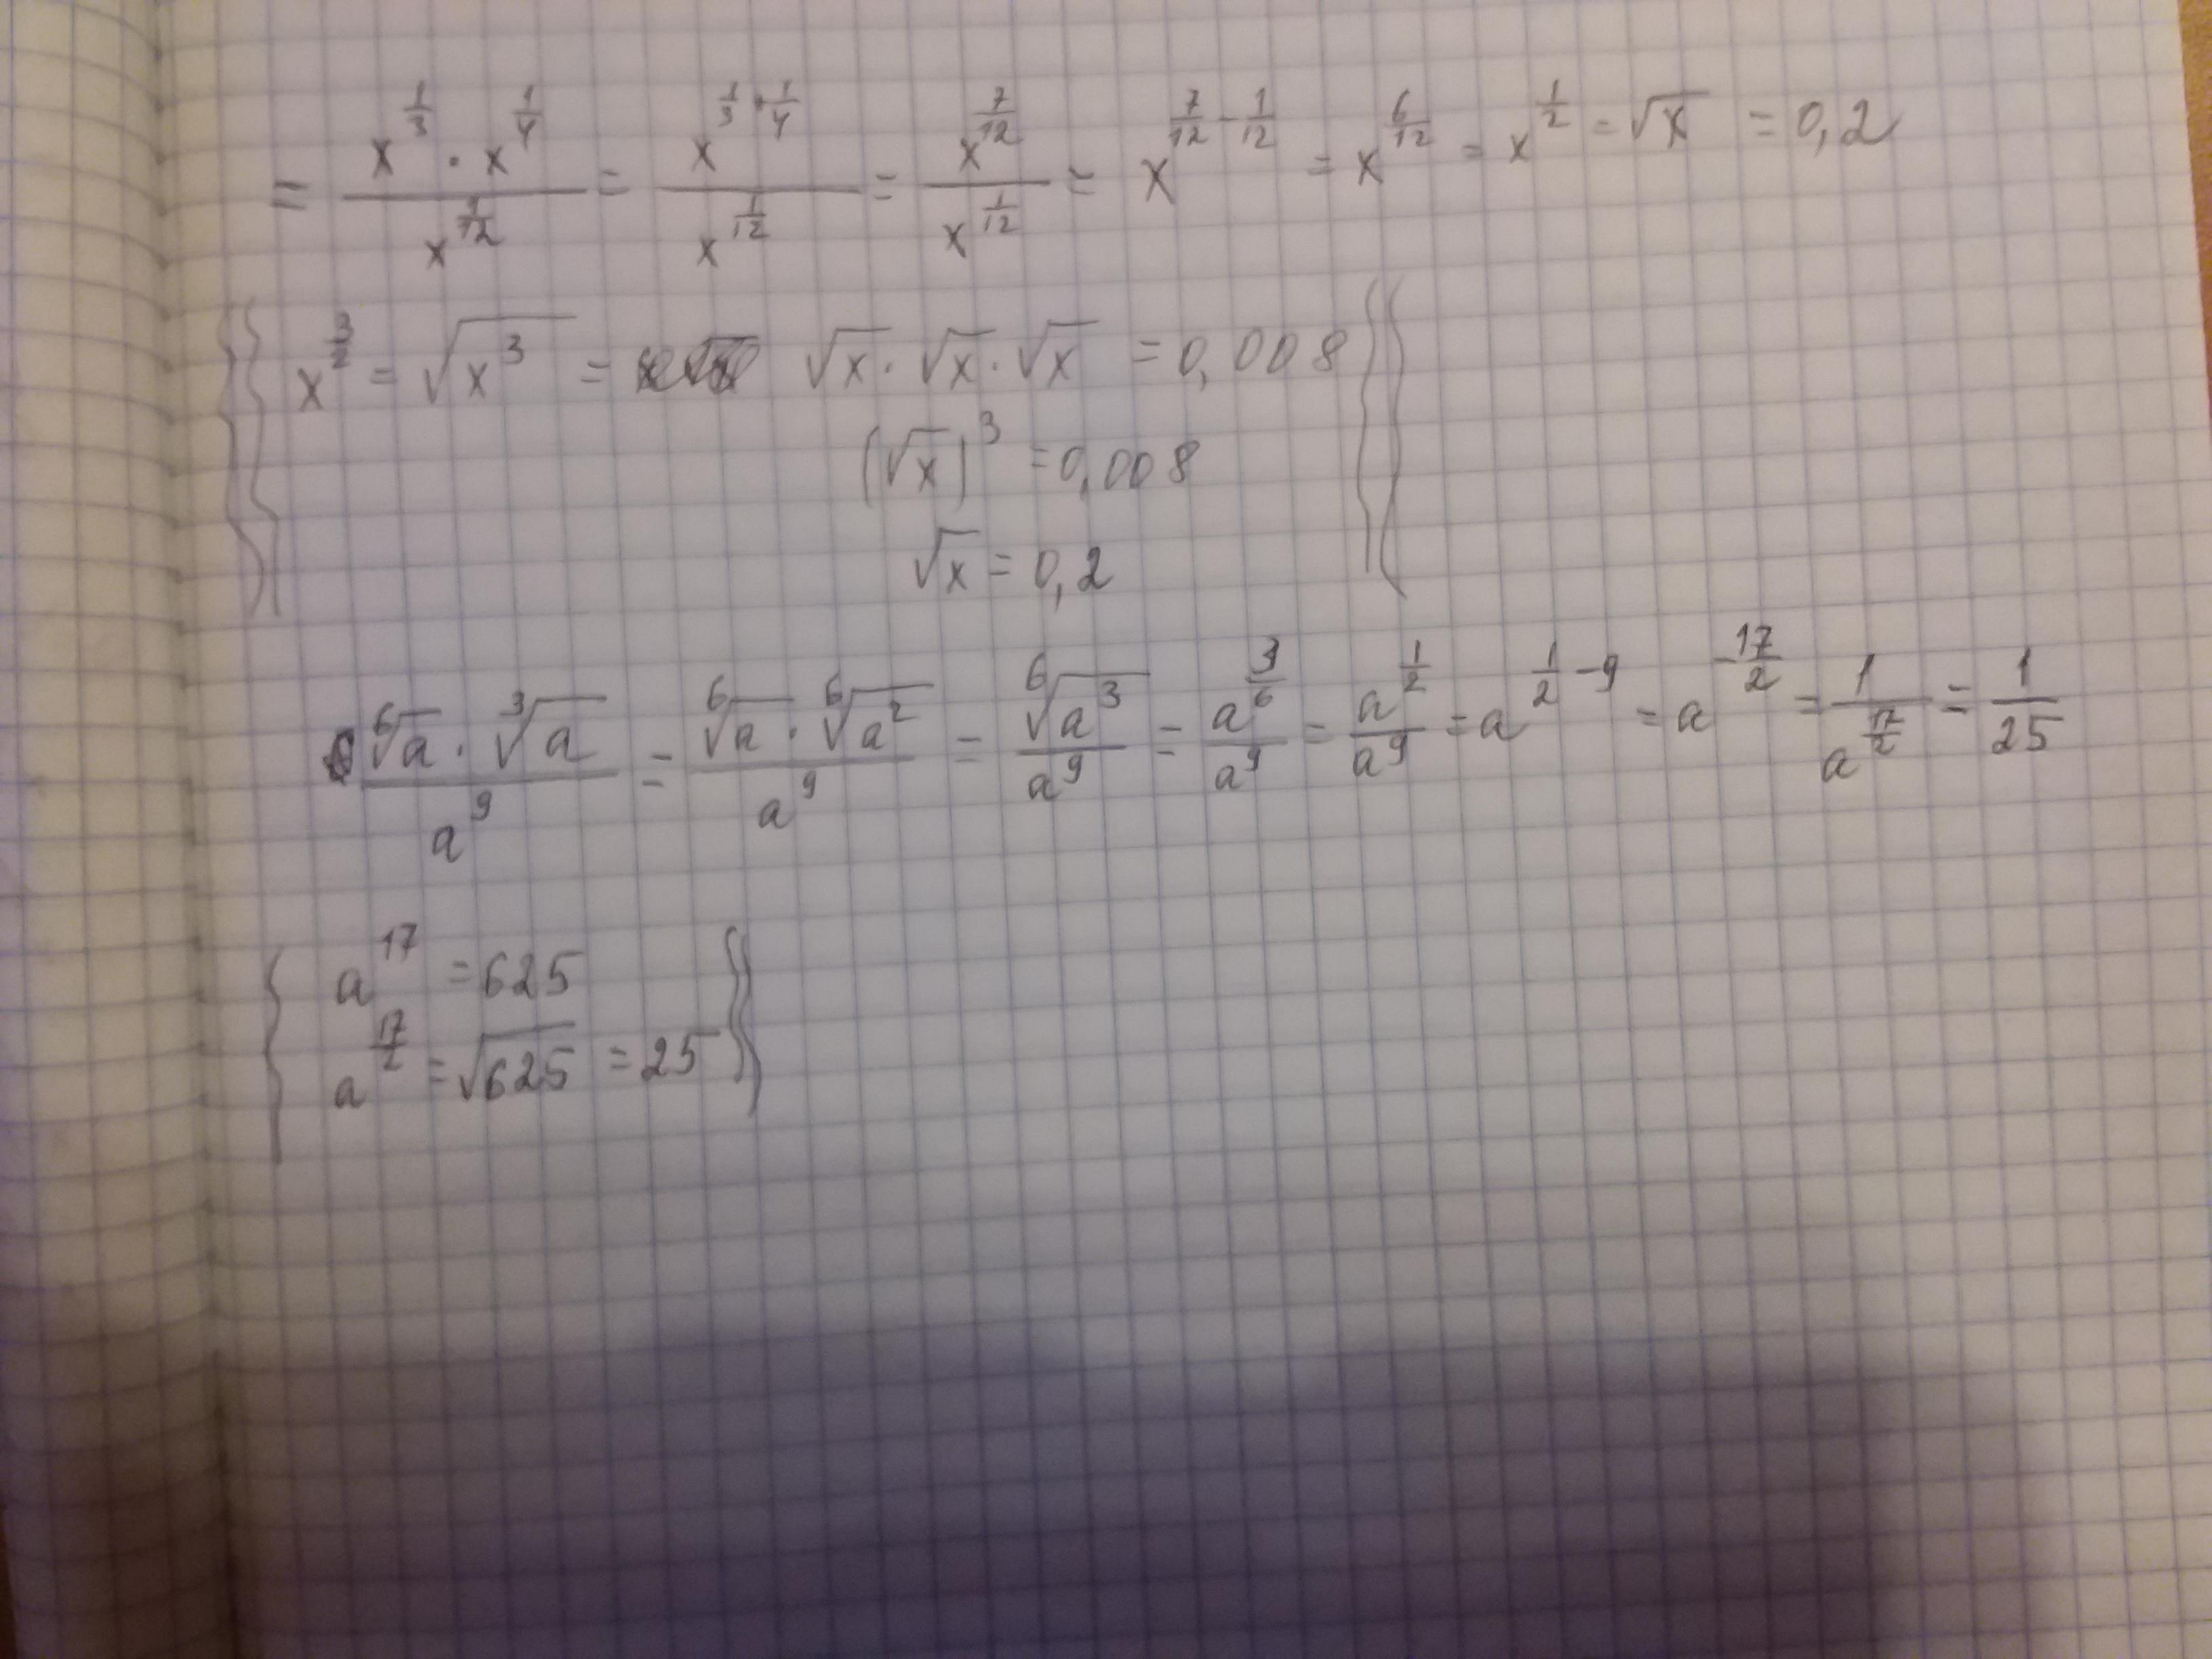 = x^(1/3) · x^(1/4) / x^(1/12) = x^(1/3 + 1/4) / x^(1/12) = x^(7/12) / x^(1/12) = x^(7/12 - 1/12) = x^(6/12) = x^(1/2) = √x = 0,2
{{ x^(3/2) = √(x^3) = √x · √x · √x = 0,008 }}
(√x)^3 = 0,008
√x = 0,2
⁶√a · ³√a / a^9 = ⁶√a · ⁶√(a^2) / a^9 = ⁶√(a^3) / a^9 = a^(3/6) / a^9 = a^(1/2) / a^9 = a^(1/2 - 9) = a^(-17/2) = 1 / a^(17/2) = 1/25
{ a^17 = 625
a^(17/2) = √625 = 25 }}